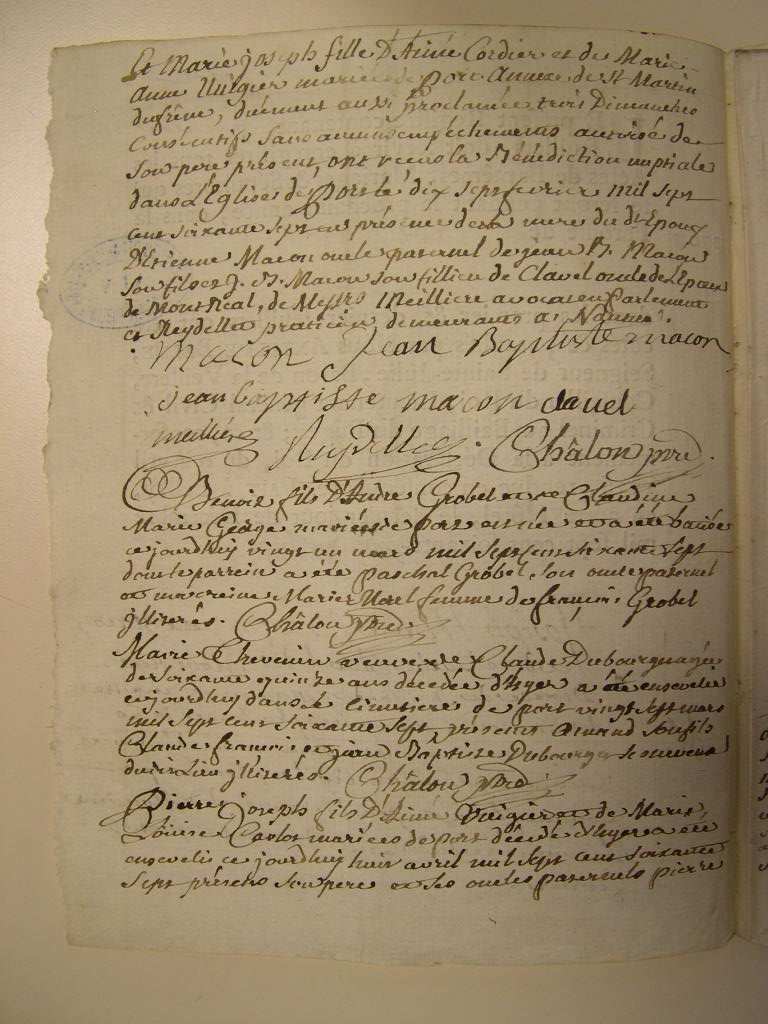 Et Marie joseph fille D'Aimé Cordier et de Marie
Anne Vuigier mariée de port Annexe de St Martin
dufrêne, duement aussi proclamée trois Dimanches
Consécutifs sans aucuns empêchements autorisé de
Son pere présent, ont reçus la Bénédiction nuptiale
dans L'Eglise de Port le dix sept fevrier mil sept
cent soixante sept en présence de la mere du dt Epoux
D'Etienne Macon oncle paternel de jean Bt. Macon
Son fils et J. Bt. Macon Son fillieu de Clavel oncle de L'Epoux
de Montreal, de Messrs Meilliere, avocat en Parlement
et Reydellet praticien demeurants à Nantua.
Macon Jean Baptiste macon
jean baptisse macon clavel
meilliere Reydellet. Châlon ptre.
Benoit fils D'Andre Grobel et de Claudine
Marie George mariés de port est née et a été batisée
ce jourdhuy vingt un mars mil sept cent soixante sept
dont le parrein a été paschal Grobel, son oncle paternel
et marreine Marie femme de françois Grobel
ylliterés. Châlon ptre
Marie Thevenin veuve de Claude Dubourg agée
de Soixante quinze ans décedée d'hyer a été ensevelie
cejourdhuy dans le cimetiere de port vingt sept mars
mil sept cent soixante sept, présents Amand Son fils
Claude françois et jean Baptiste Dubourg Se neveux
dudit Lieu yllitérés. Châlon ptre
Pierre joseph fils D'Aimé Vuigier et de Marie
Loüise Carlos mariés de port décédé d'hyer a été
ensevelis ce jourdhuy huit avril mil sept cent soixante
sept présents Son pere et Ses oncles paternels pierre